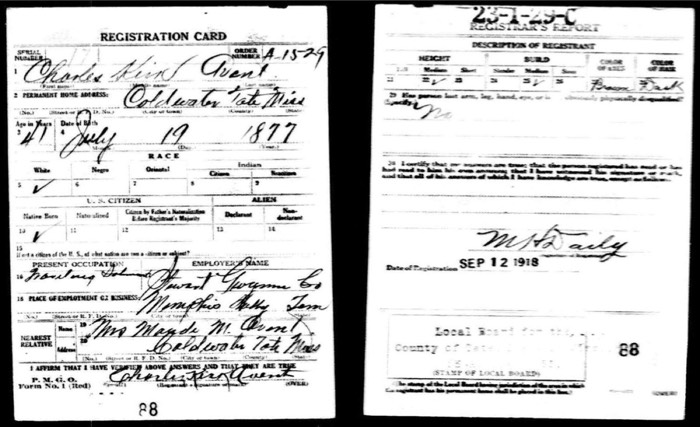 REGISTRATION CARD
SERIAL NUMBER
ORDER NUMBER A-1529
1 Charles Avent
(First name) (Middle name) (Last name)
2 PERMANENT HOME ADDRESS: Coldwater Tate Miss
(No.) (Street or R. F. D. No.) (City or town) (County) (State)
Age in Years Date of Birth
3 41 4 July 19 1877
(Month.) (Day.) (Year.)
RACE
White Negro Oriental Indian
Citizen Noncitizen
5 ✓ 6 7 8 9
U. S. CITIZEN ALIEN
Native Born Naturalized Citizen by Father's Naturalization Before Registrant's Majority Declarant Non-declarant
10 ✓ 11 12 13 14
15
If not a citizen of the U. S., of what nation are you a citizen or subject?
PRESENT OCCUPATION EMPLOYER'S NAME
16 Traveling Salesman Stewart Gwynne Co
18 PLACE OF EMPLOYMENT OR BUSINESS: Memphis Tenn
(No.) (Street or R. F. D. No.) (City or town) (County) (State)
NEAREST RELATIVE
Name 19 Mrs Maude M. Avent
Address 20 Coldwater Tate Miss
(No.) (Street or R. F. D. No.) (City or town) (County) (State)
I AFFIRM THAT I HAVE VERIFIED ABOVE ANSWERS AND THAT THEY ARE TRUE
P. M. G. O.
Form No. 1 (Red) Charles Avent
(Registrant's signature or mark) (OVER)
88
23-1-29-C
REGISTRAR'S REPORT
DESCRIPTION OF REGISTRANT
HEIGHT BUILD COLOR OF EYES COLOR OF HAIR
Tall Medium Short Slender Medium Stout
21 22 ✓ 23 24 25 ✓ 26 27 Brown 28 Dark
29 Has person lost arm, leg, hand, eye, or is he obviously physically disqualified?
(Specify.) No
30 I certify that my answers are true; that the person registered has read or has
had read to him his own answers; that I have witnessed his signature or mark,
and that all of his answers of which I have knowledge are true, except as follows:
M H Daily
(Signature of Registrar)
Date of Registration SEP 12 1918
Local Board for the
County of Tate
88
(STAMP OF LOCAL BOARD)
(The stamp of the Local Board having jurisdiction of the area in which
the registrant has his permanent home shall be placed in this box.)